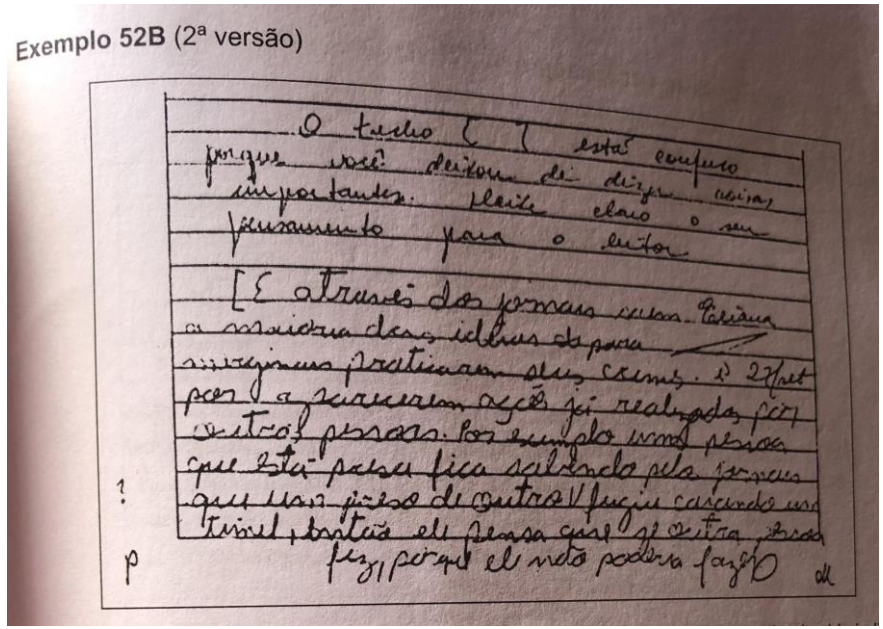 Exemplo 52B (2ª versão)
O trecho [ ] está confuso
porque você deixou de dizer coisas
importantes. Deixe claro o seu
pensamento para o leitor
[E através dos jornais
a maioria das idéias para
marginais praticarem seus crimes. é 27/set
por aparecerem ações já realizadas por
outras pessoas. Por exemplo uma pessoa
que está presa fica sabendo pelo jornais
? que um preso de outro V fugiu cavando um
túnel, então ele pensa que se outra pessoa
p fez, porque ele não poderia fazer